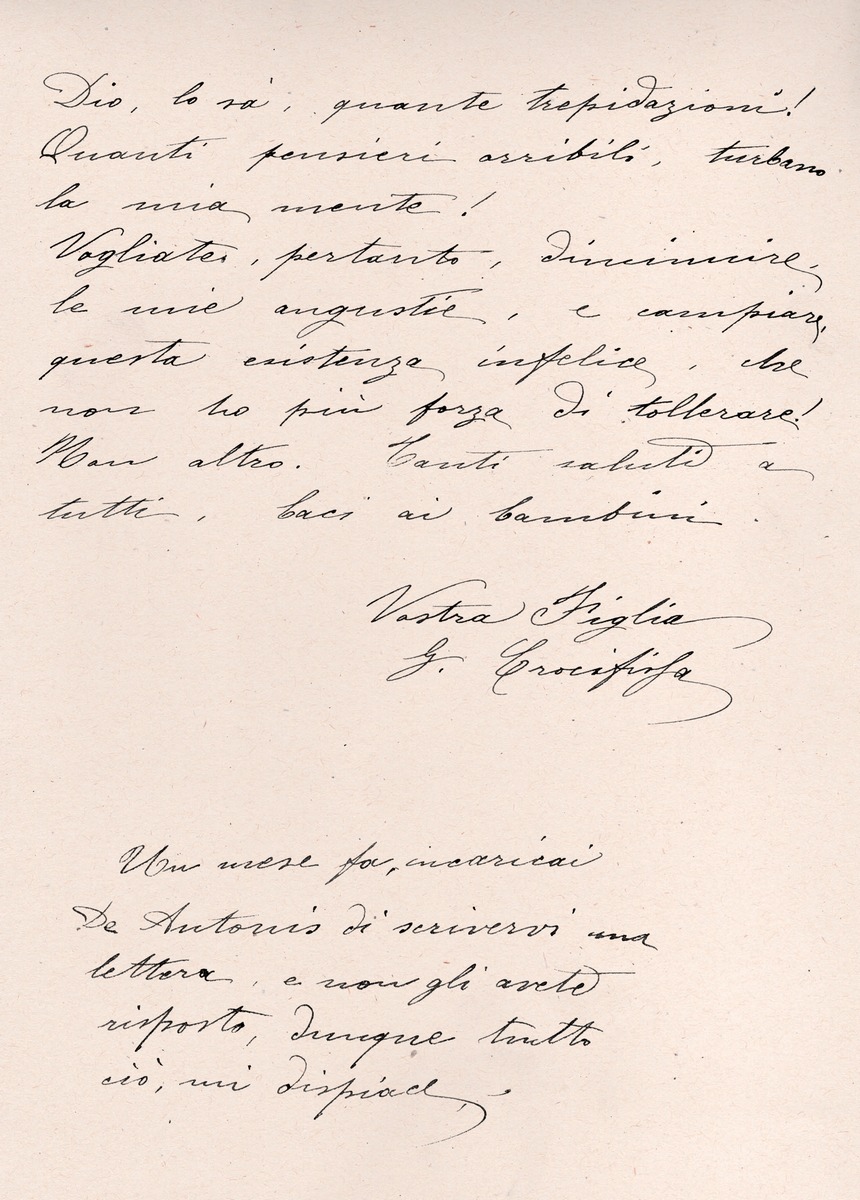 Dio, lo sà, quante trepidazioni!
Quanti pensieri orribili, turbano
la mia mente!
Vogliate, pertanto, diminuire
le mie angustie, e campiare,
questa esistenza infelice, che
non ho più forza di tollerare!
Non altro. Tanti saluti a
tutti, baci ai bambini.
Vostra Figlia
G. Crocifissa
Un mese fa, incaricai
De Antonis di scrivervi una
lettera, e non gli avete
risposto, dunque tutto
ciò, mi dispiace,